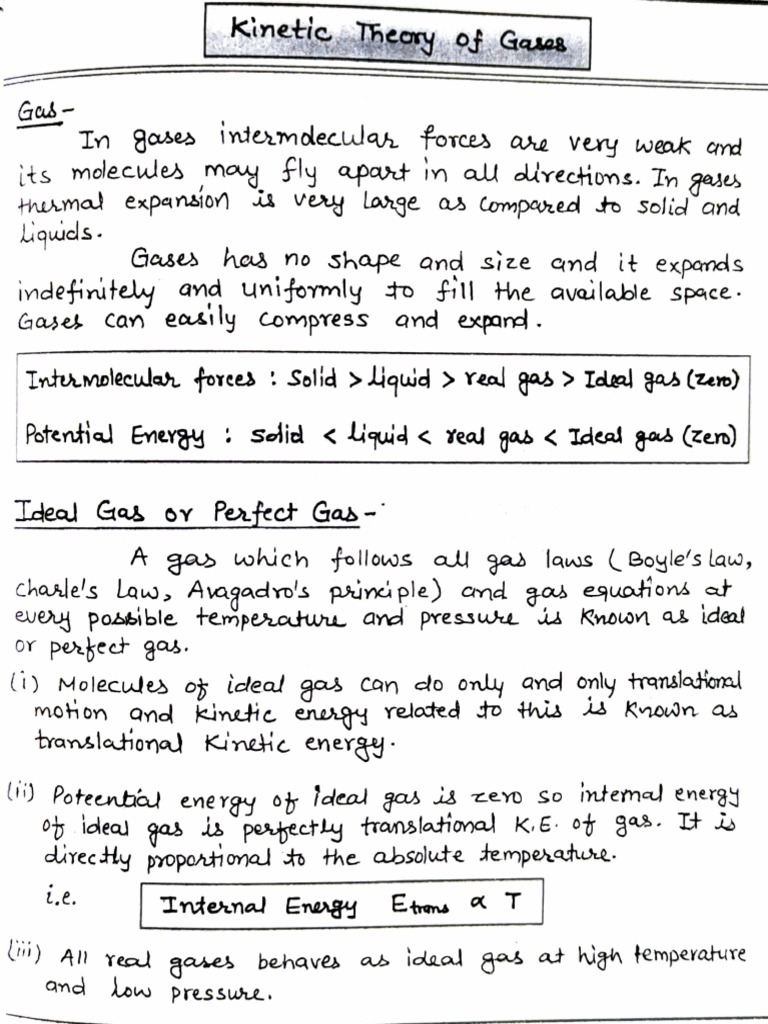 Kinetic Theory of Gases
Gas-
In gases intermolecular forces are very weak and
its molecules may fly apart in all directions. In gases
thermal expansion is very large as compared to solid and
liquids.
Gases has no shape and size and it expands
indefinitely and uniformly to fill the available space.
Gases can easily compress and expand.
Intermolecular forces : Solid > Liquid > real gas > Ideal gas (zero)
Potential Energy : solid < liquid < real gas < Ideal gas (zero)
Ideal Gas or Perfect Gas-
A gas which follows all gas laws (Boyle's law,
Charle's Law, Avagadro's principle) and gas equations at
every possible temperature and pressure is known as ideal
or perfect gas.
(i) Molecules of ideal gas can do only and only translational
motion and kinetic energy related to this is known as
translational kinetic energy.
(ii) Poteential energy of ideal gas is zero so internal energy
of ideal gas is perfectly translational K.E. of gas. It is
directly proportional to the absolute temperature.
i.e. Internal Energy Etrans ∝ T
(iii) All real gases behaves as ideal gas at high temperature
and low pressure.